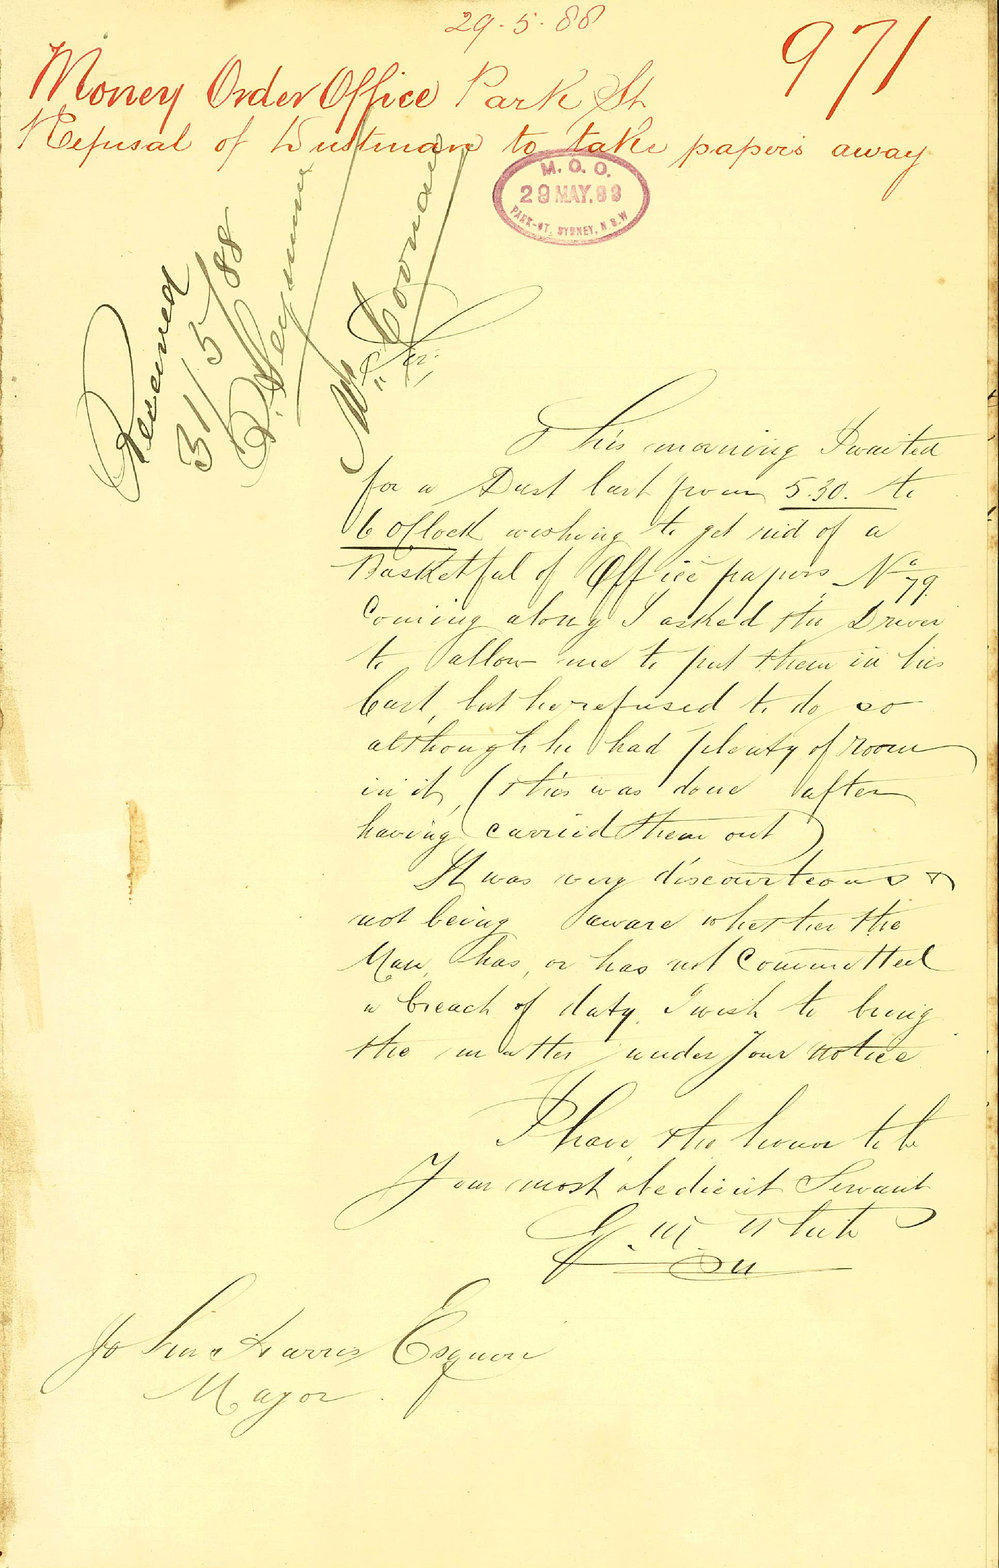 29.5.88
971
Money Order Office Park St
Refusal of Dustman to take papers away
M.O.O.
29 MAY. 88
PARK-ST, SYDNEY, N.S.W
Received
31/5/88
Seymour
Mr
Sir,
This morning I waited
for a Dust Cart from 5.30. to
6 O'Clock wishing to get rid of a
Basketful of Office papers, No 79
Coming along I asked the Driver
to allow me to put them in his
Cart, but he refused to do so
although he had plenty of room
in it, (this was done after
having carried them out)
It was very discourteous &
not being aware whether the
Man, has, or has not Committed
a breach of duty, I wish to bring
the matter under Your notice
I have the honor to be
Your most obedient Servant
John Harris Esquire
Mayor.